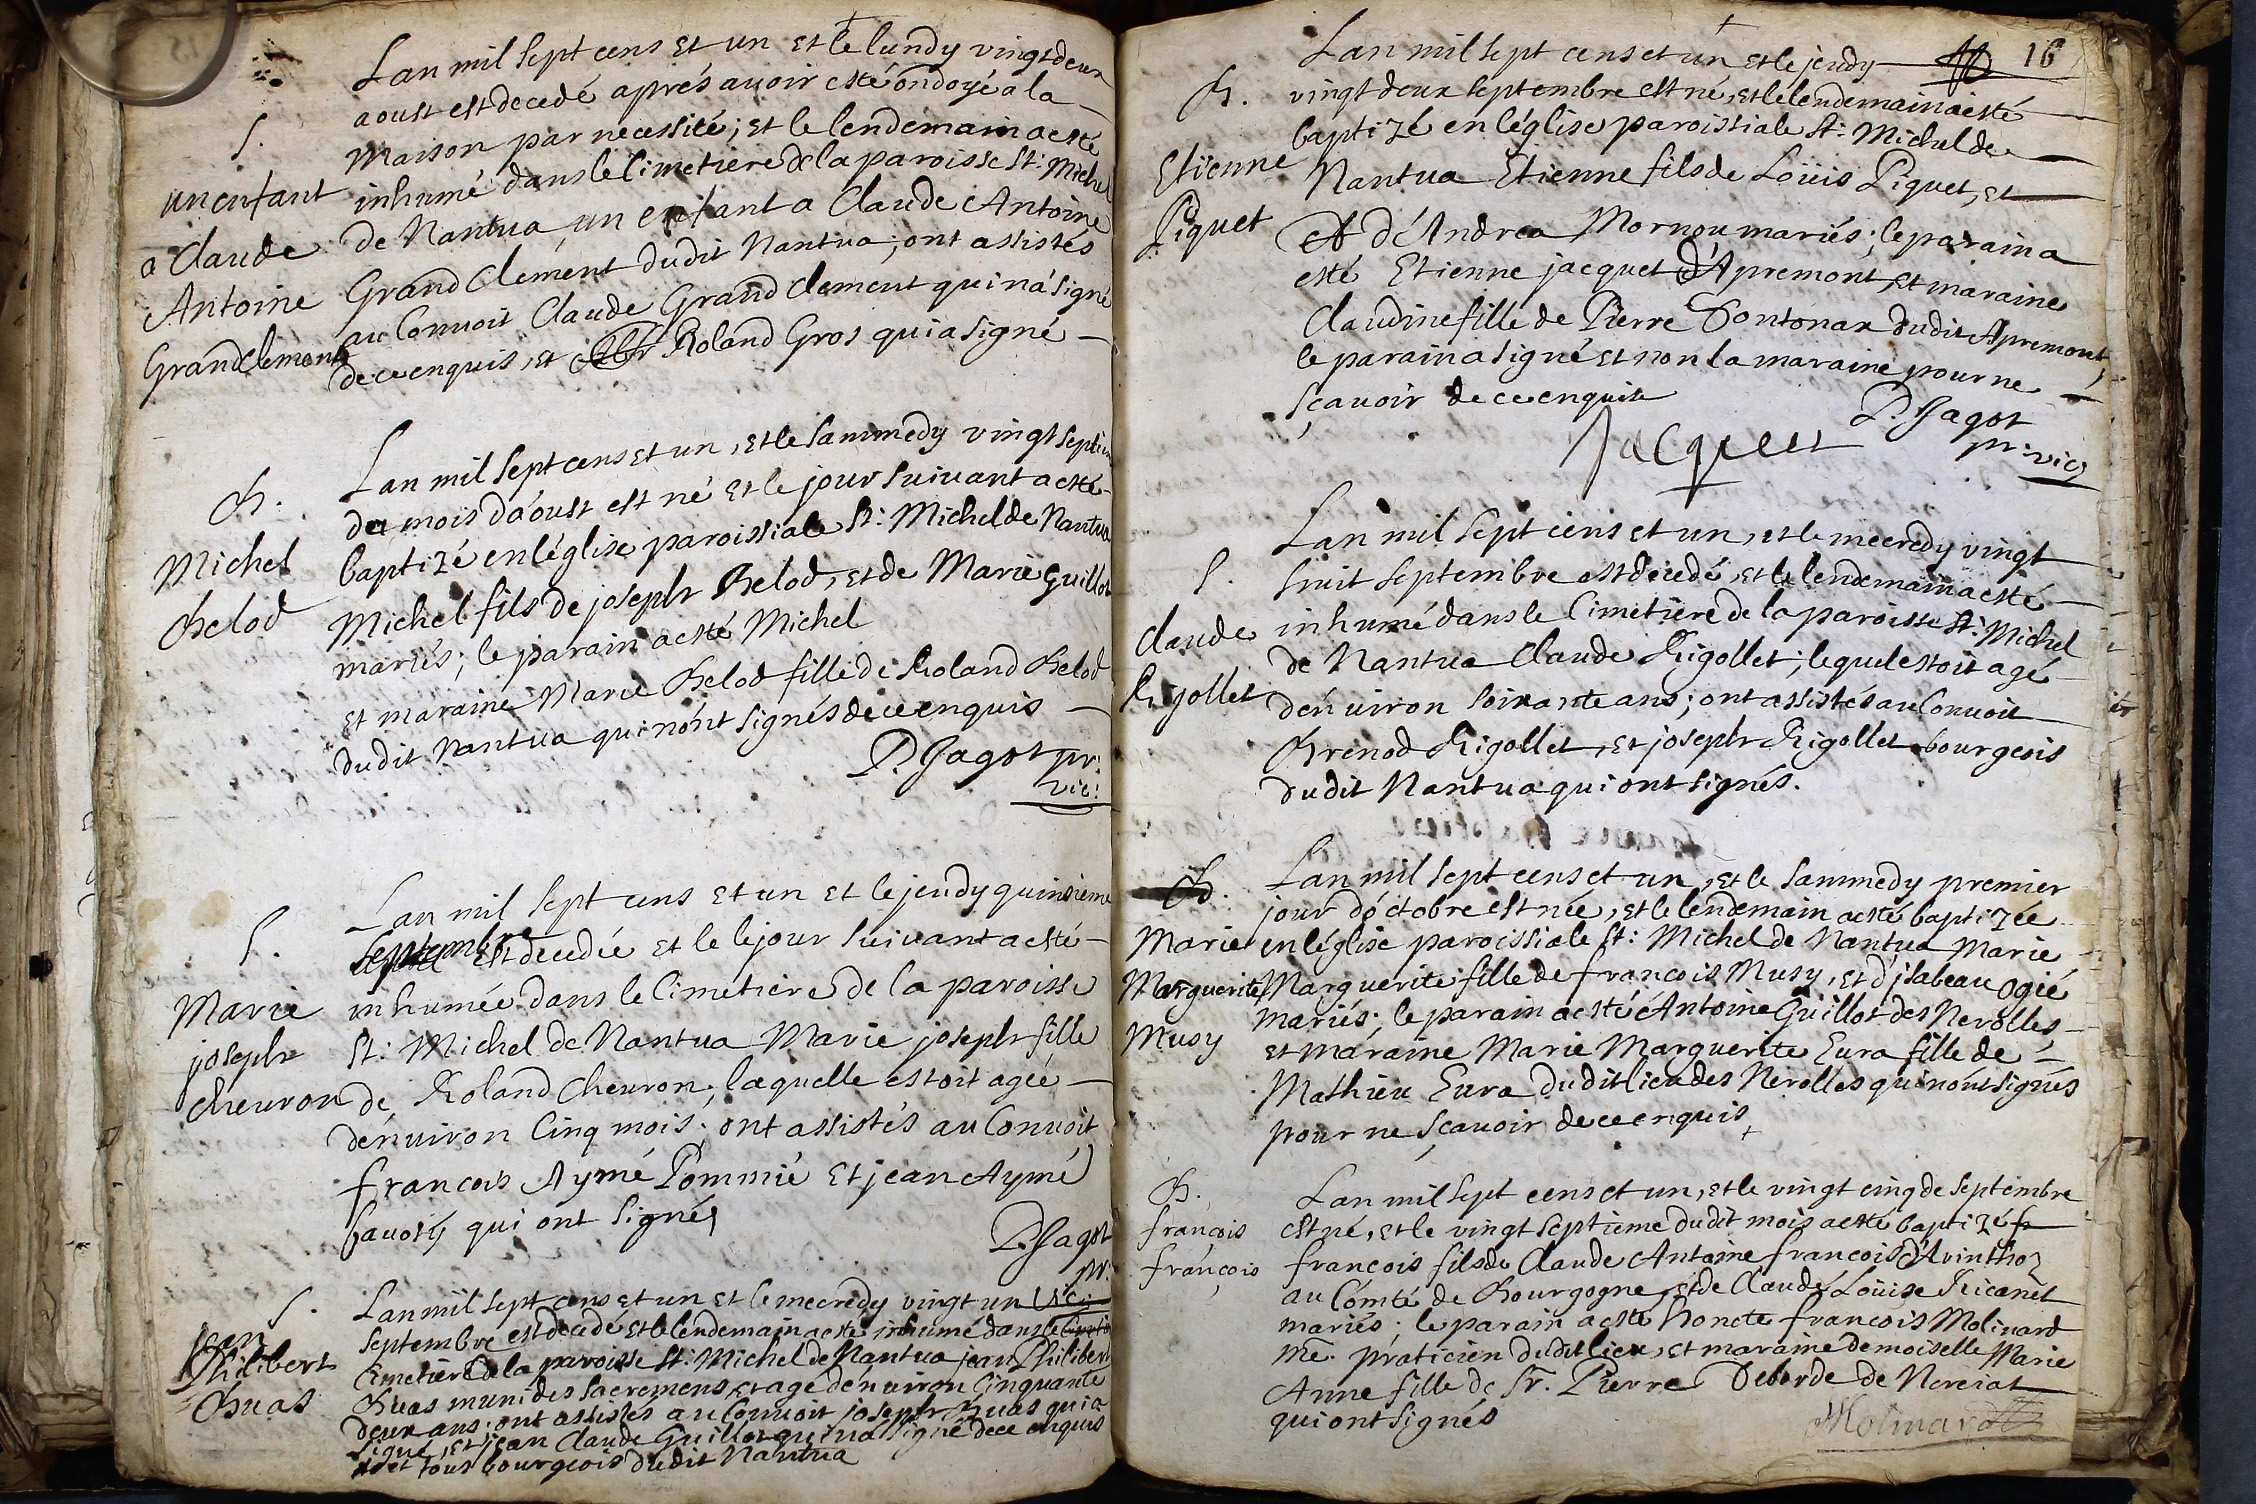 Lan mil sept cens et un et le lundy vingt deux
aoust est decedé aprés auoir esté ondoyé a la
S.
maison par necessité; et le lendemain a esté
un enfant
inhumé dans le Cimetiere de la paroisse St: Michel
a Claude
de Nantua un enfant a Claude Antoine
Antoine
Grand Clement dudit Nantua; ont assistés
Grandclement
au Conuoit Claude Grand Clement qui n'a signé
de ce enquis, et Roland Gros qui a signé
Lan mil sept cens et un, et le sammedy vingt septieme
B.
du mois d'aoust est né et le jour suiuant a esté
Michel
baptizé en l'église paroissiale St: Michel de Nantua
Belod
Michel fils de joseph Belod, et de Marie Guillot
mariés; le parain a esté Michel
et maraine Marie Belod fille de Roland Belod
dudit Nantua qui n'ont signés de ce enquis
P. Jagot pr:
vic:
Lan mil sept cens et un et le jeudy quinsieme
S.
septembre est decedée et le lejour suiuant a esté
Marie
inhumée dans le Cimetiere de la paroisse
joseph
St: Michel de Nantua Marie joseph fille
Cheuron
de Roland Cheuron; laquelle estoit agée
d'enuiron Cinq mois; ont assistés au Conuoit
francois Aymé Pommié et jean Aymé
bauozy qui ont signés
P. Jagot
pr:
vic:
S.
Lan mil sept cens et un et le mecredy vingt un
jean
septembre est decedé et le lendemain a esté inhumé dans le
Philibert
Cimetiere de la paroisse St: Michel de Nantua jean Philibert
Buas
Buas muni des sacremens, et agé d'enuiron Cinquante
deux ans; ont assistés au Conuoit joseph Buas qui a
signé, et jean Claude Guillot qui n'a signé de ce enquis
et tous bourgeois dudit Nantua
16
Lan mil sept cens et un et le jeudy
B.
vingt deux septembre est né, et le lendemain a esté
baptizé en l'église paroissiale St: Michel de
Etienne
Nantua Etienne fils de Loüis Piquet, et
Piquet
d'Andrea Mornou mariés; le parain a
esté Etienne jacquet d'Apremont, et maraine
Claudine fille de Pierre Sontonax dudit Apremont,
le parain a signé et non la maraine pour ne
sçauoir de ce enquise
P. Jagot
Jacquet
pr: vic:
Lan mil sept cens et un, et le mecredy vingt
S.
huit septembre est decedé, et le lendemain a esté
Claude
inhumé dans le Cimetiere de la paroisse St: Michel
de Nantua Claude Rigollet; lequel estoit agé
Rigollet
d'enuiron soixante ans; ont assistés au Conuoit
Brenod Rigollet, et joseph Rigollet bourgeois
dudit Nantua qui ont signés.
B.
Lan mil sept cens et un, et le sammedy premier
jour d'octobre est née, et le lendemain a esté baptizée
Marie
en l'église paroissiale St: Michel de Nantua Marie
Marguerite
Marguerite fille de francois Musy, et d'jsabeau Ogié
Musy
mariés; le parain a esté Antoine Guillot des Nerolles,
et maraine Marie Marguerite Eura fille de
Mathieu Eura dudit lieu des Nerolles qui n'ont signés
pour ne sçauoir de ce enquis
B.
Lan mil sept cens et un, et le vingt cinq de septembre
françois
est né, et le vingt septieme dudit mois a esté baptizé fr
françois
francois fils de Claude Antoine francois d'Avinthoz
au Comté de Bourgogne, et de Claude Loüise Ricanet
mariés; le parain a esté honete francois Molinard
me. praticien dudit lieu, et maraine demoiselle Marie
Anne fille de Sr. Pierre Deborde de Nerciat
qui ont signés
Molinard